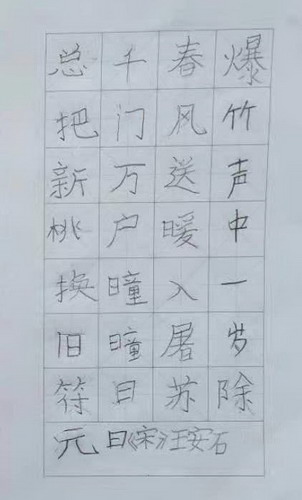 爆竹声中一岁除
春风送暖入屠苏
千门万户曈曈日
总把新桃换旧符
元日《宋》王安石